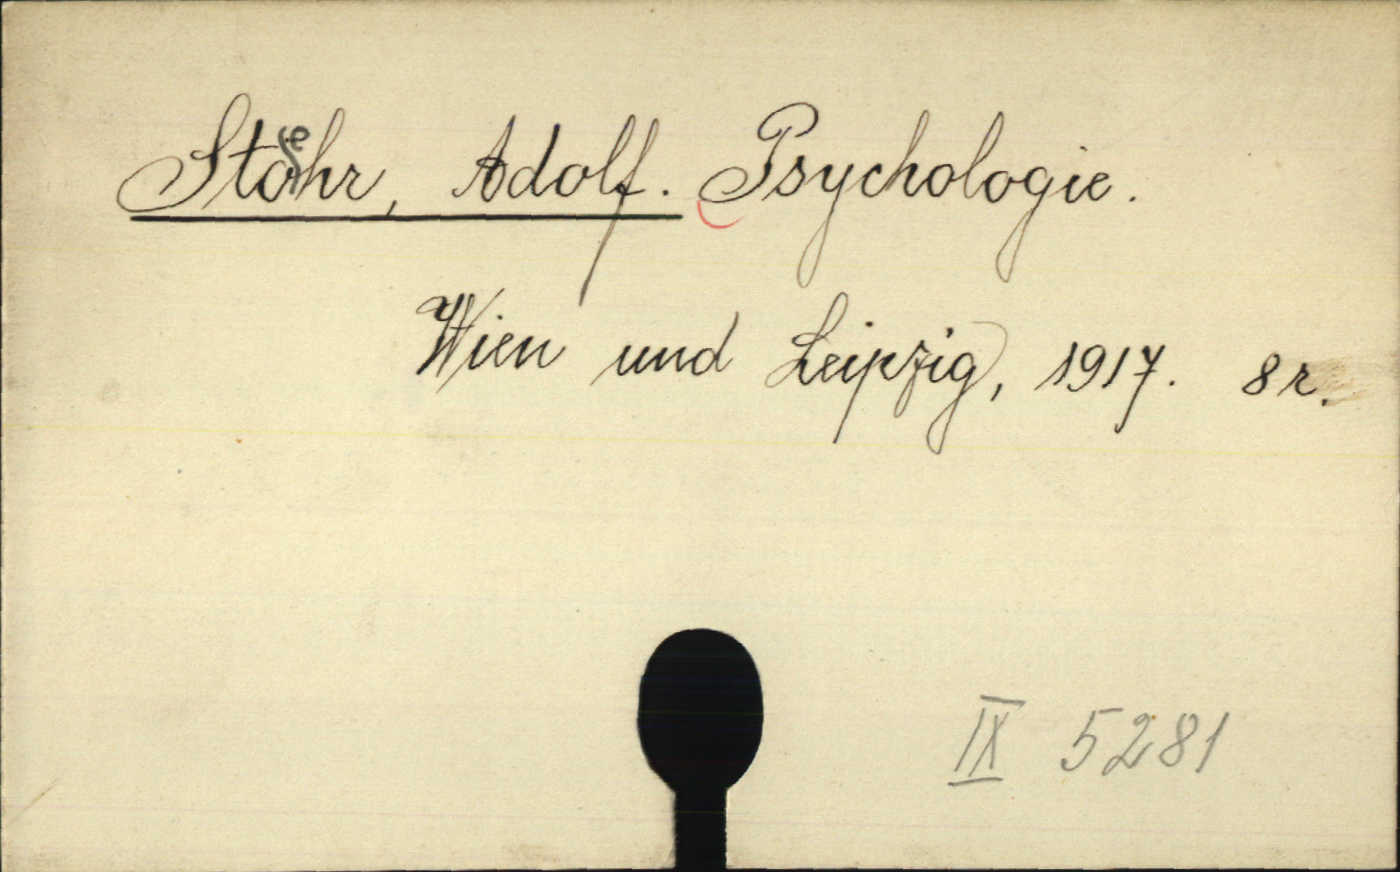 Stoehr, Adolf. Psychologie.
Wien und Leipzig, 1917. 8r.
IX 5281